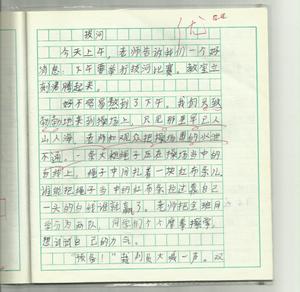 优
拔河
今天上午，老师告诉我们一个好
消息：下午要举行拔河比赛。教室立
刻沸腾起来。
好不容易熬到了下午。我们兴致
勃勃地来到操场上，只见那里早已人
山人海，老师和观众把操场围的水泄
不通。一条大粗绳子压在操场当中的
白线上，绳子中间扎着一块红布条儿，
谁能把绳子当中的红布条拉过靠自己
一尖的白线谁就赢了。老师把全班同
学分为两队，同学们个个摩拳擦掌，
想试试自己的力气。
“预备！”裁判员大喊一声。双